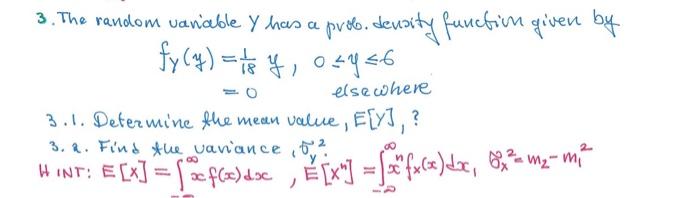 3. The random variable Y has a prob. density function given by
fy(y) = 1/18 y, 0 ≤ y ≤ 6
= 0 elsewhere
3.1. Determine the mean value, E[Y], ?
3.2. Find the variance, σ_y²?
HINT: E[X] = ∫_{-∞}^{∞} x f(x) dx, E[xⁿ] = ∫_{-∞}^{∞} xⁿ fx(x) dx, σ_x² = m₂ - m₁²